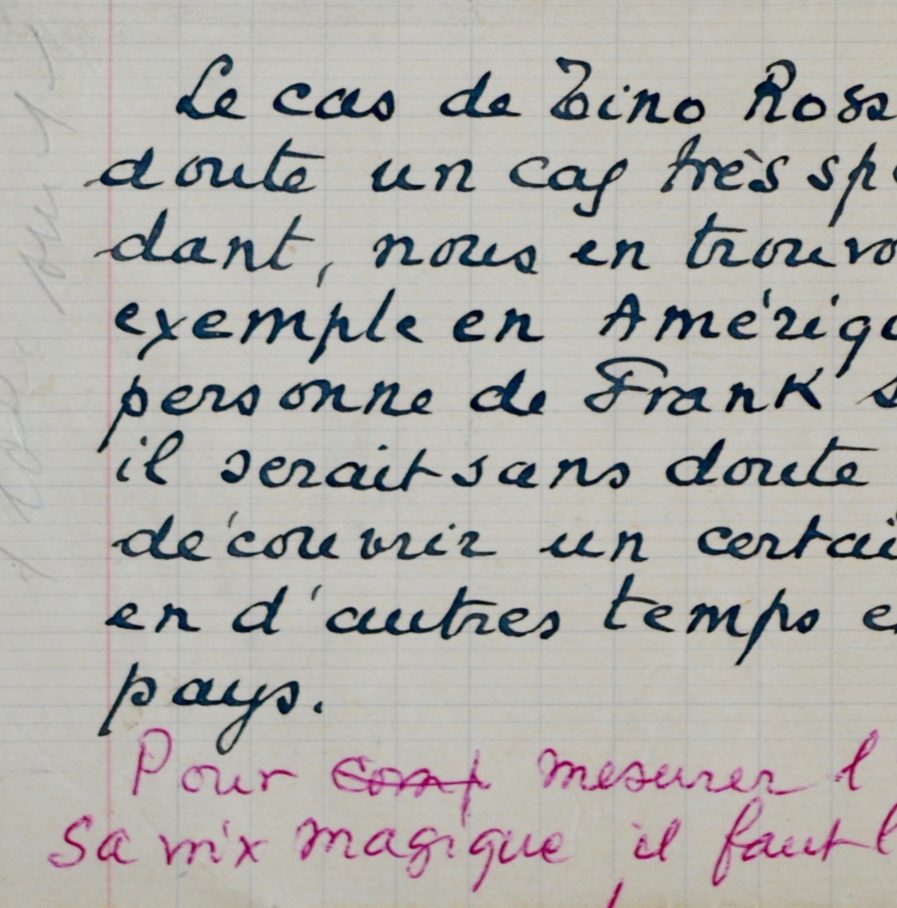 Le cas de Tino Ross
doute un cas très spé
dant, nous en trouvo
exemple en Amériqu
personne de Frank S
il serait sans doute
découvrir un certai
en d'autres temps e
pays.
Pour comp mesurer l
sa voix magique il faut l